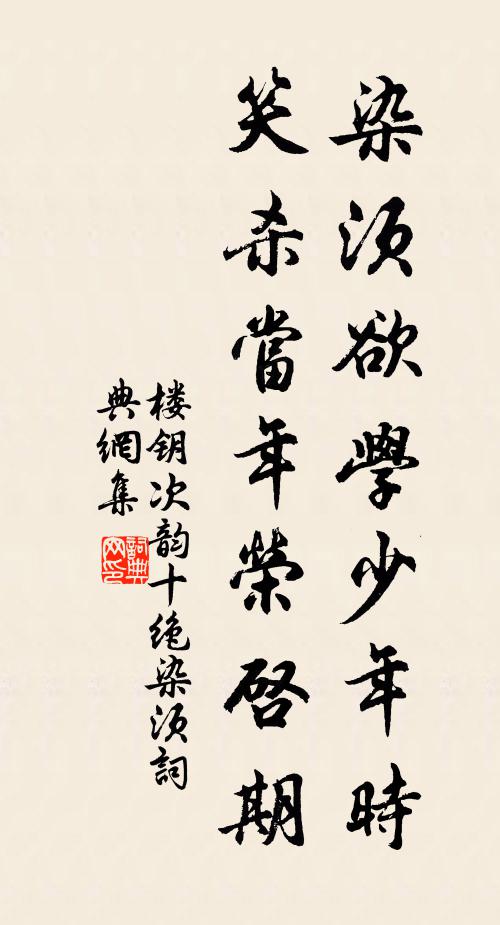 染须欲學少年時
笑杀當年榮啓期
楼钥次韵十绝染须詞
典網集
詞典网印